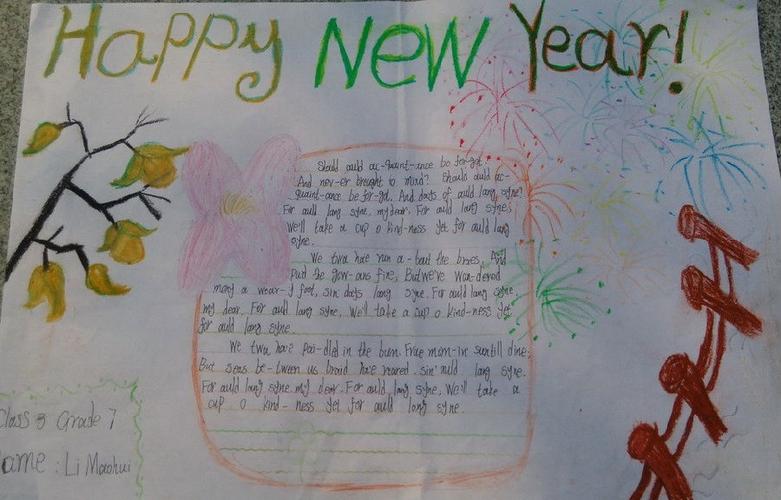 Happy New Year!
Should auld ac-quaint-ance be for-got.
And nev-er brought to mind? Should auld ac-
quaint-ance be for-got. And days of auld lang syne?
For auld lang syne, my dear, For auld lang syne,
We'll take a cup o kind-ness yet for auld lang
syne.
We twa hae run a-bout the braes, And
pu'd the gow-ans fine, But we've wan-dered
mony a wear-y foot, sin days lang syne. For auld lang syne
my dear, For auld lang syne, We'll take a cup o kind-ness yet
for auld lang syne.
We twa have pai-dled in the burn. Frae morn-in sun till dine;
But seas be-tween us braid hae roared. sin' auld lang syne.
For auld lang syne my dear. For auld lang syne. We'll take a
cup o kind-ness yet for auld lang syne.
Class 3 Grade 7
ame: Li Maohui